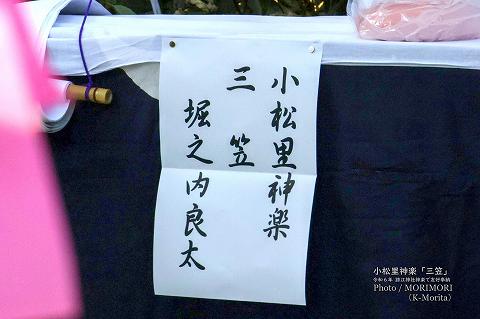 小松里神楽
三笠
堀之内良太
小松里神楽「三笠」
令和6年 諸江神社神楽で友好奉納
Photo / MORIMORI
(K-Morita)